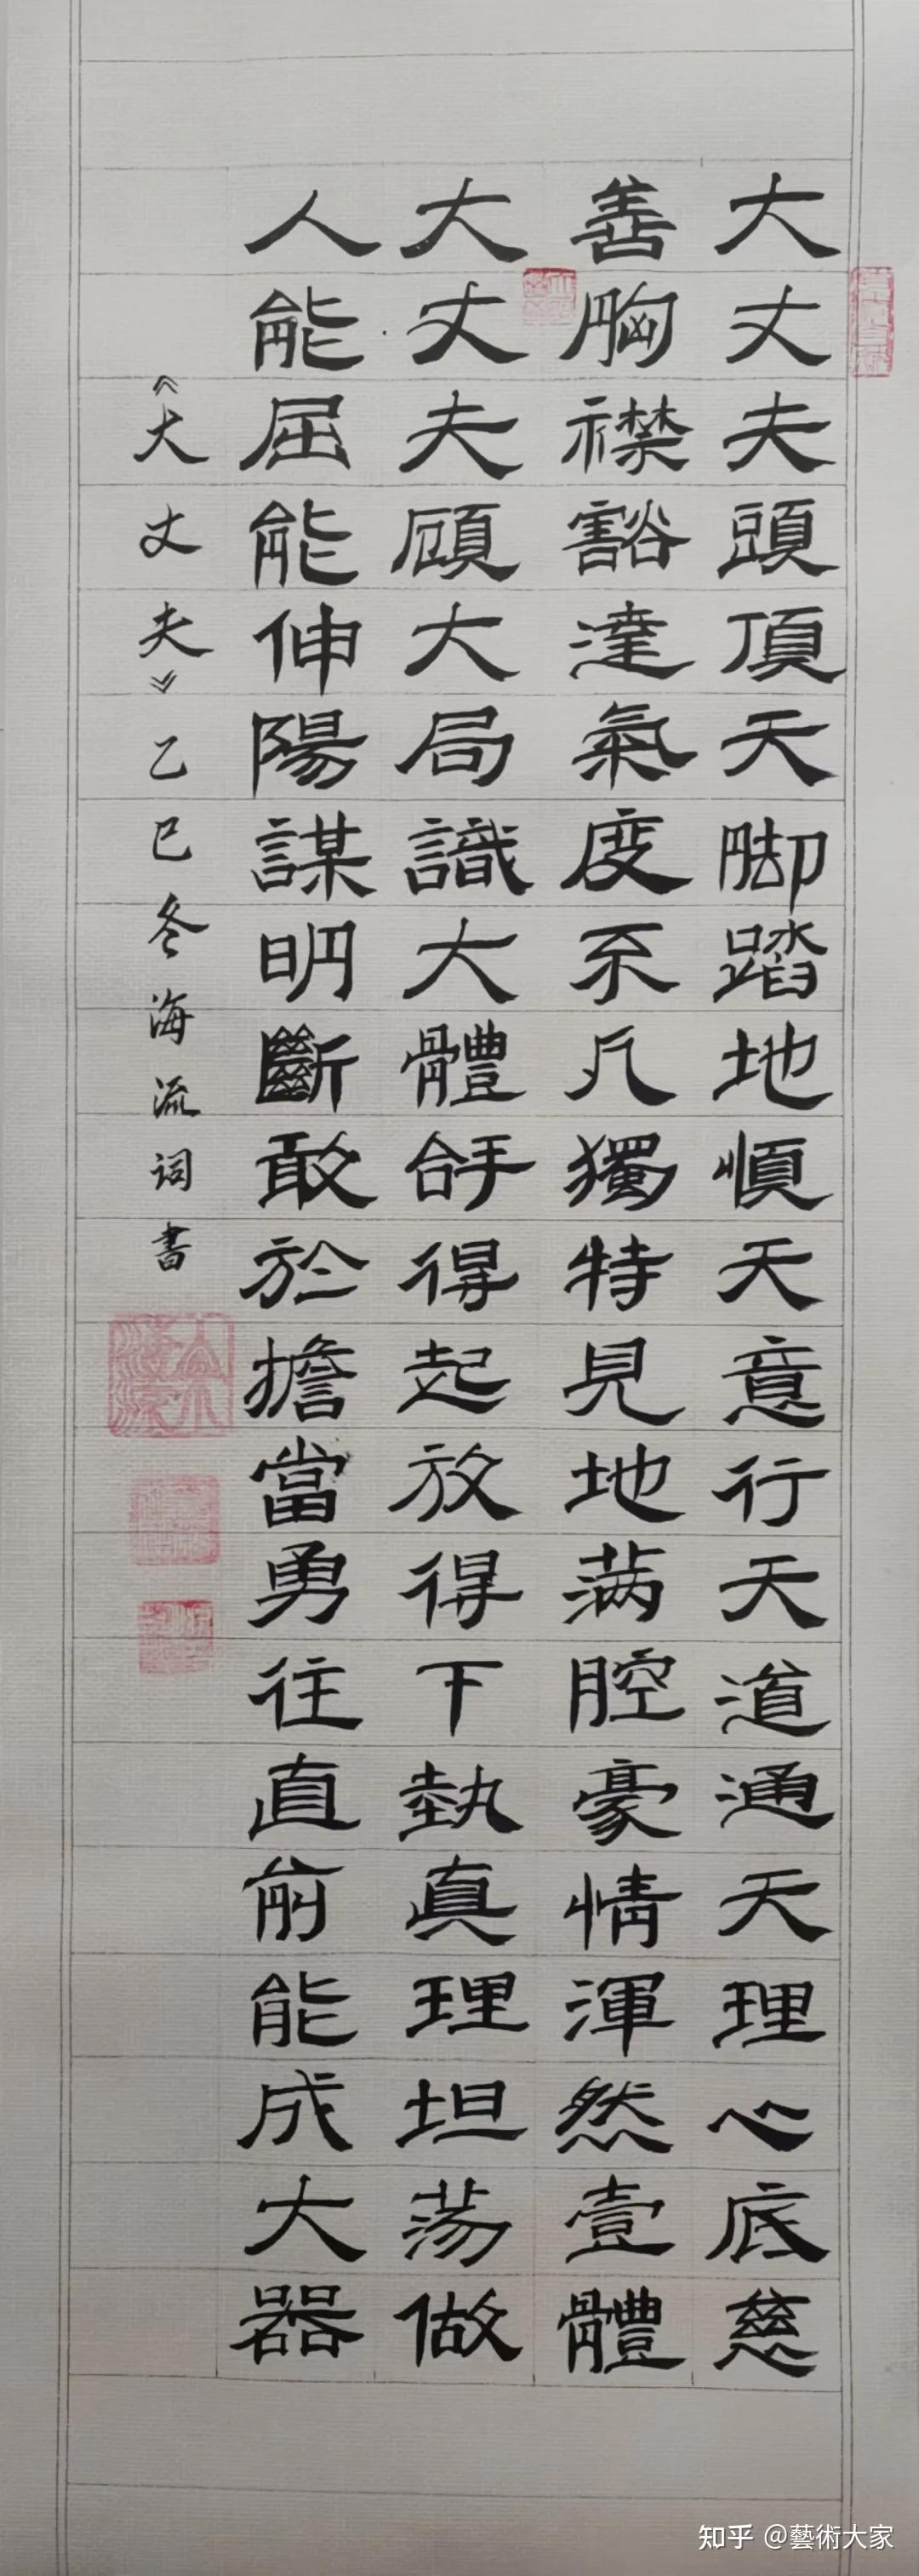 大丈夫頭頂天脚踏地順天意行天道通天理心底慈
善胸襟豁達氣度不凡獨特見地满腔豪情渾然壹體
大丈夫顧大局識大體拿得起放得下執真理坦荡做
人能屈能伸陽謀明斷敢於擔當勇往直前能成大器
《大丈夫》乙巳冬海流詞書
知乎 @藝術大家